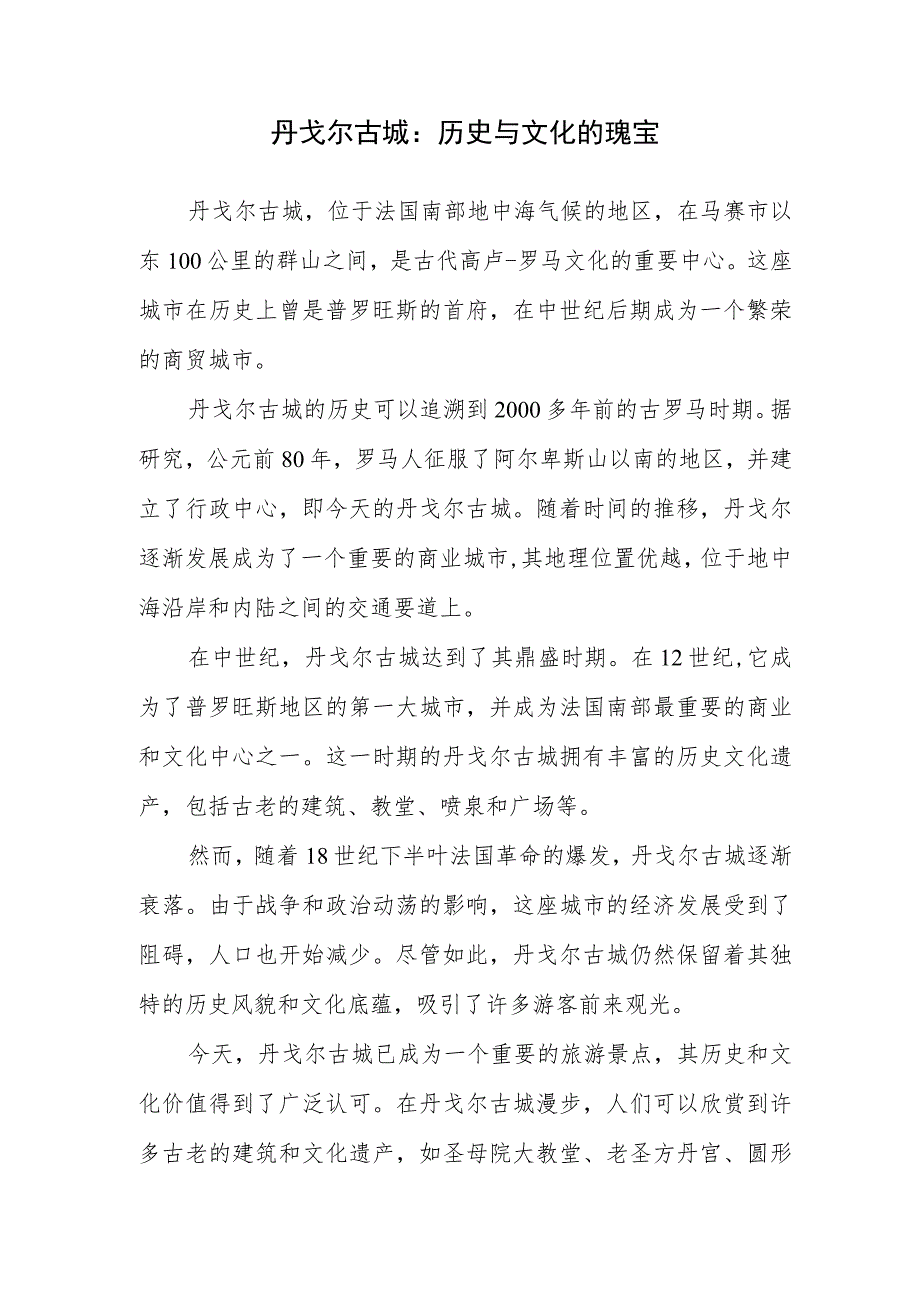 丹戈尔古城：历史与文化的瑰宝
丹戈尔古城，位于法国南部地中海气候的地区，在马赛市以
东100公里的群山之间，是古代高卢-罗马文化的重要中心。这座
城市在历史上曾是普罗旺斯的首府，在中世纪后期成为一个繁荣
的商贸城市。
丹戈尔古城的历史可以追溯到2000多年前的古罗马时期。据
研究，公元前80年，罗马人征服了阿尔卑斯山以南的地区，并建
立了行政中心，即今天的丹戈尔古城。随着时间的推移，丹戈尔
逐渐发展成为了一个重要的商业城市,其地理位置优越，位于地中
海沿岸和内陆之间的交通要道上。
在中世纪，丹戈尔古城达到了其鼎盛时期。在12世纪,它成
为了普罗旺斯地区的第一大城市，并成为法国南部最重要的商业
和文化中心之一。这一时期的丹戈尔古城拥有丰富的历史文化遗
产，包括古老的建筑、教堂、喷泉和广场等。
然而，随着18世纪下半叶法国革命的爆发，丹戈尔古城逐渐
衰落。由于战争和政治动荡的影响，这座城市的经济发展受到了
阻碍，人口也开始减少。尽管如此，丹戈尔古城仍然保留着其独
特的历史风貌和文化底蕴，吸引了许多游客前来观光。
今天，丹戈尔古城已成为一个重要的旅游景点，其历史和文
化价值得到了广泛认可。在丹戈尔古城漫步，人们可以欣赏到许
多古老的建筑和文化遗产，如圣母院大教堂、老圣方丹宫、圆形